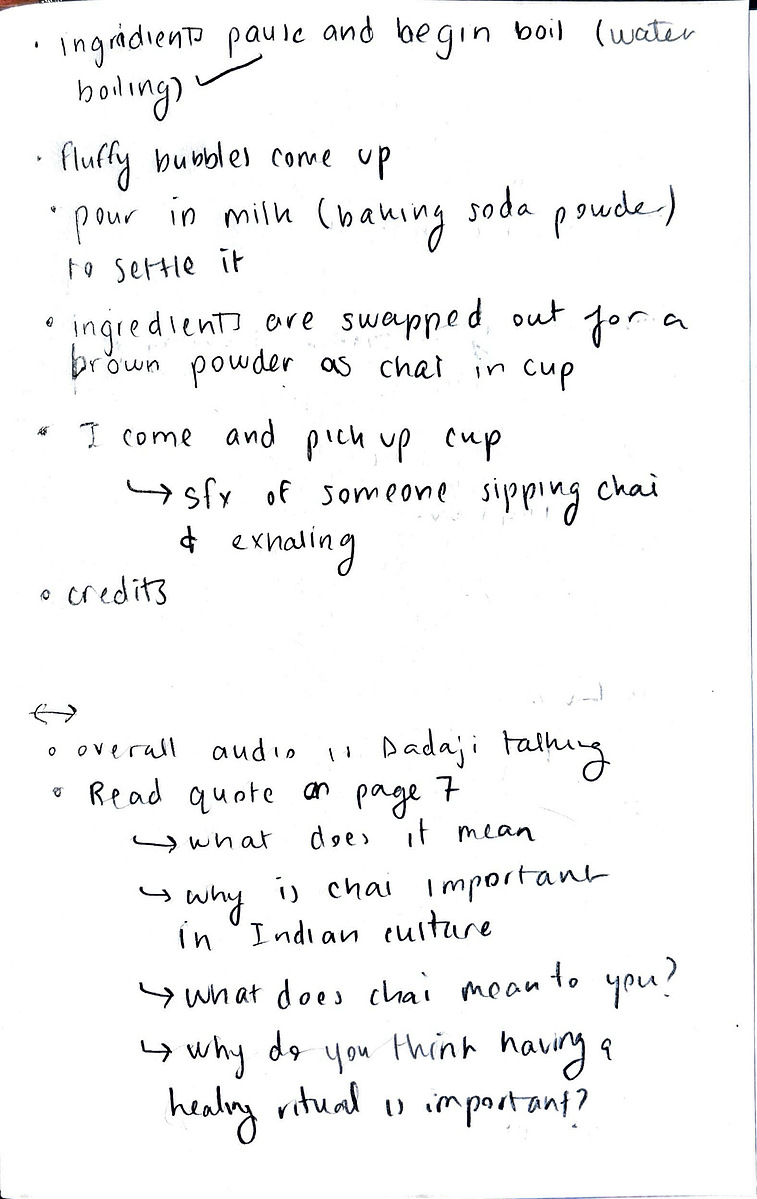 • ingredients pause and begin boil (water
boiling) ✓
• fluffy bubbles come up
• pour in milk (baking soda powder)
to settle it
• ingredients are swapped out for a
brown powder as chai in cup
• I come and pick up cup
↳ sfx of someone sipping chai
& exhaling
• credits
↔
• overall audio is Dadaji talking
• Read quote on page 7
↳ what does it mean
↳ why is chai important
in Indian culture
↳ what does chai mean to you?
↳ why do you think having a
healing ritual is important?